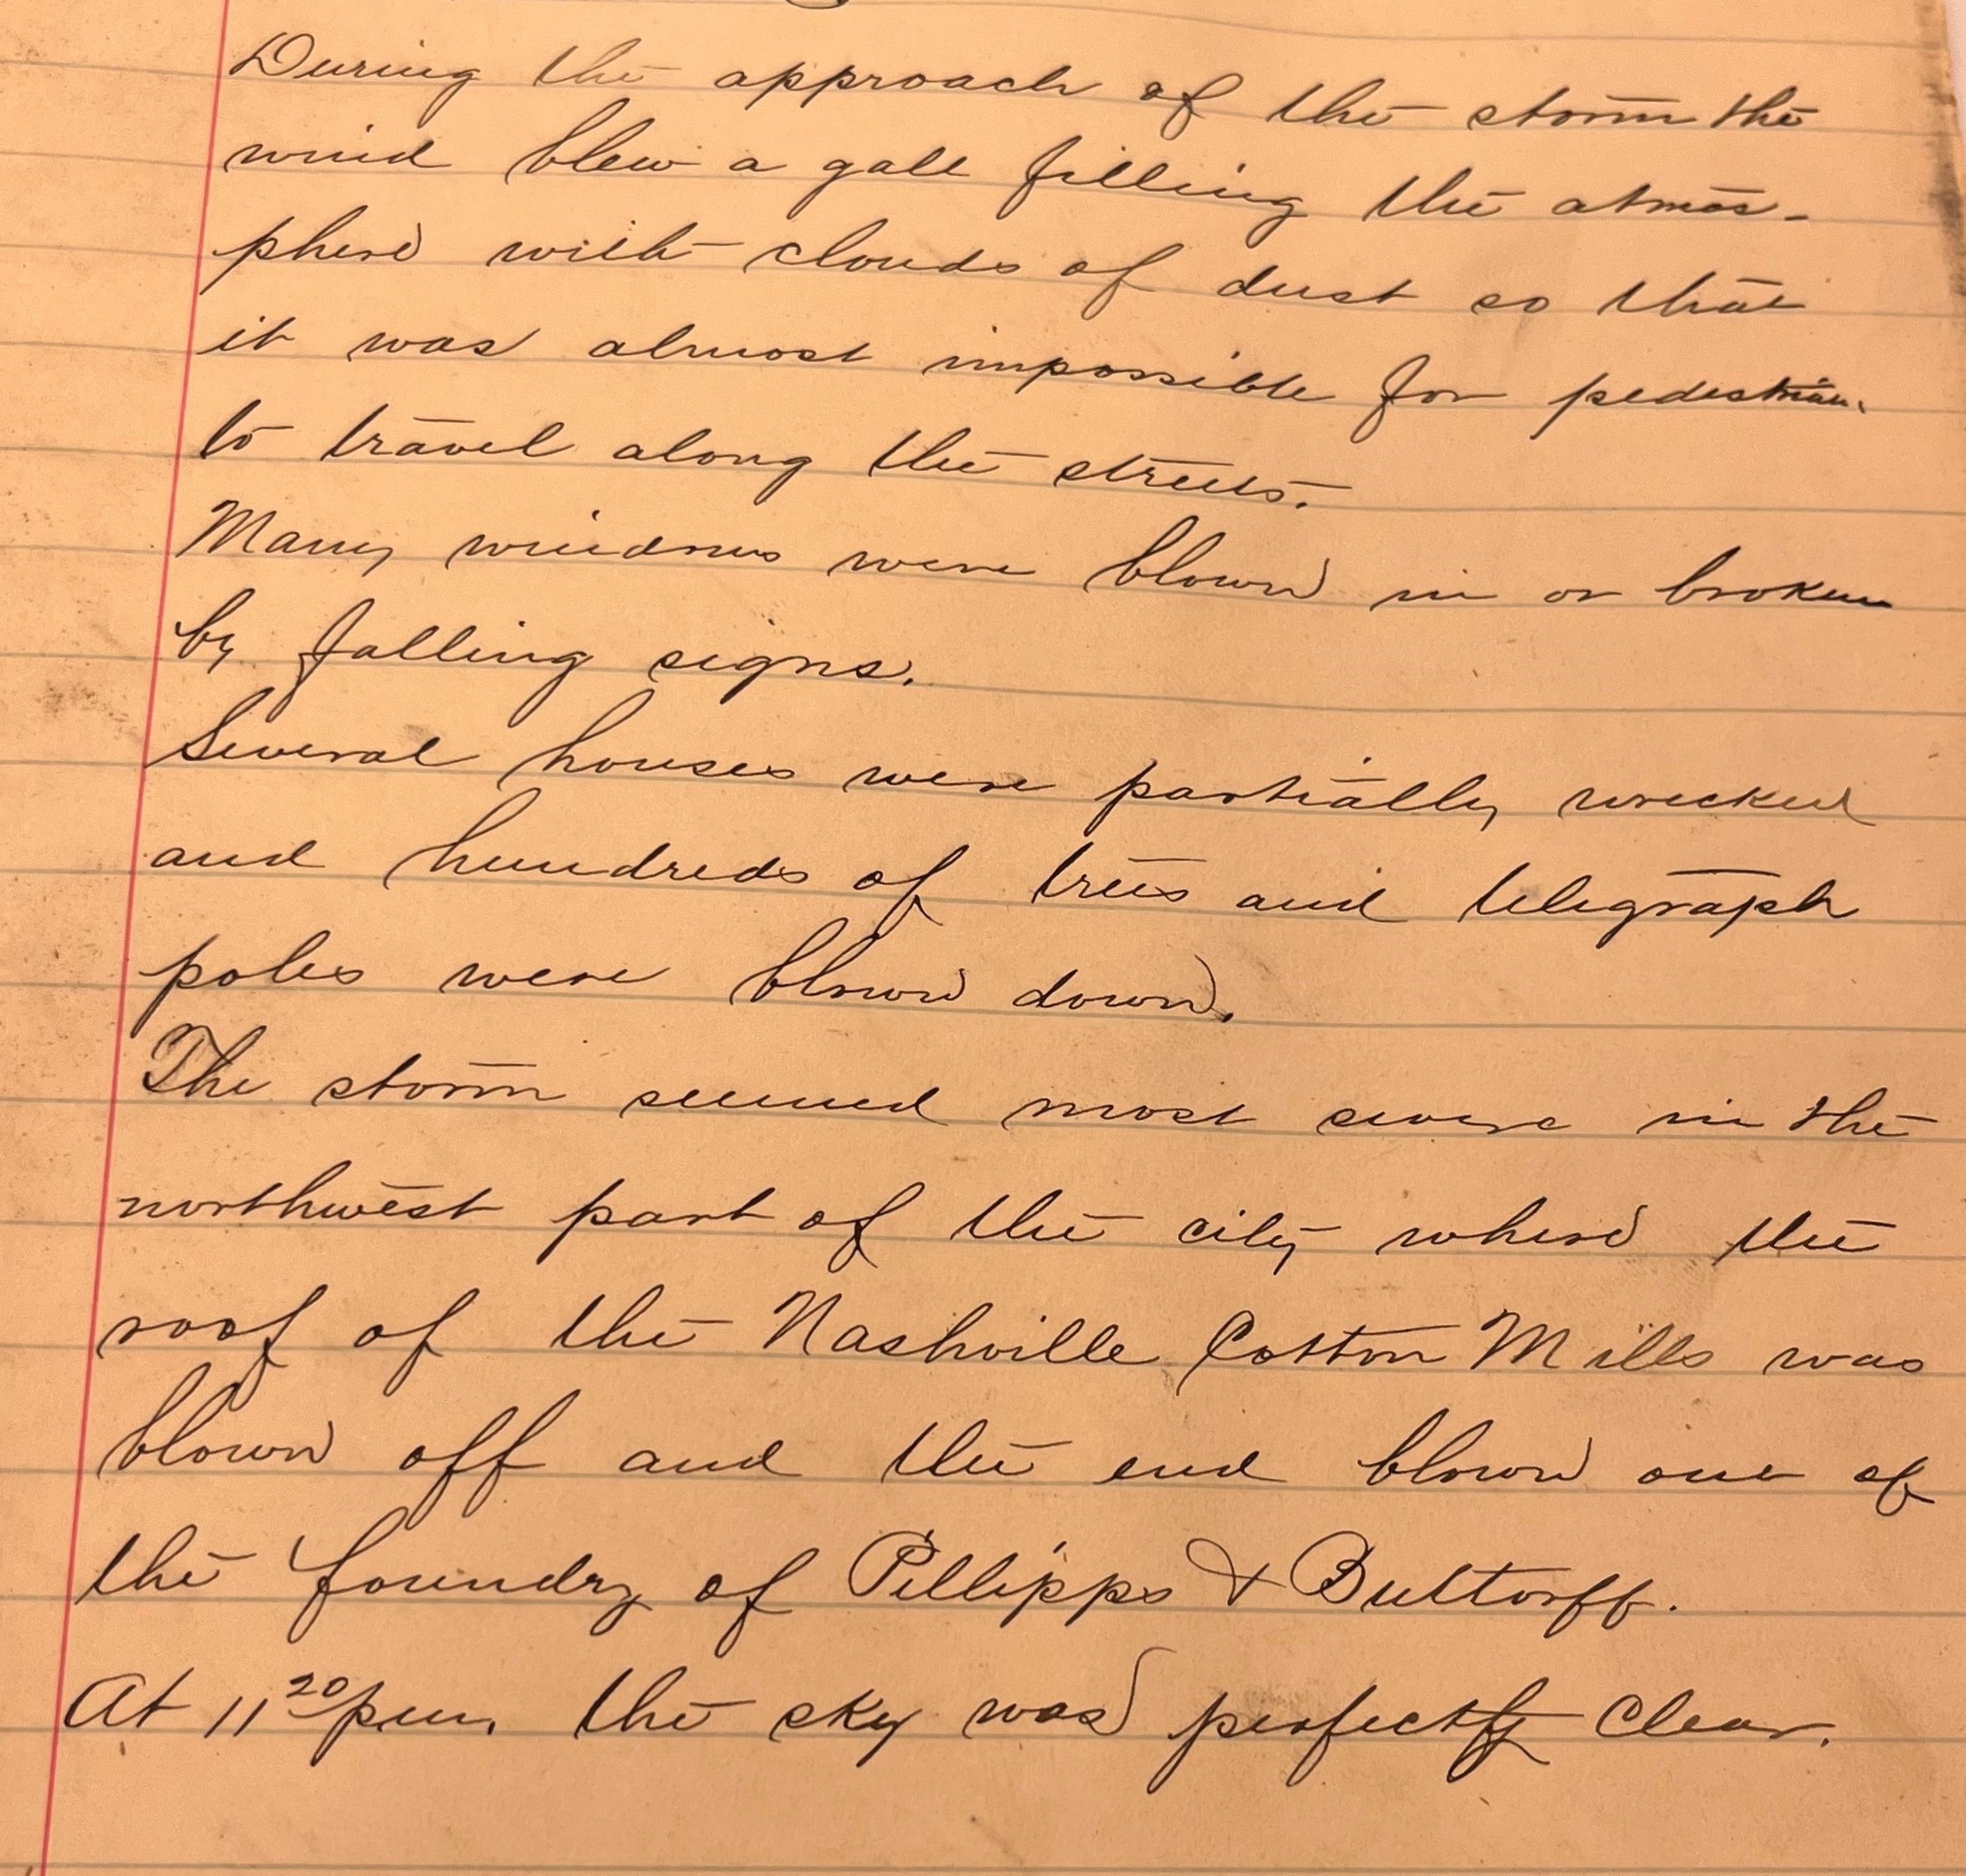 During the approach of the storm the
wind blew a gale filling the atmos-
phere with clouds of dust so that
it was almost impossible for pedestrians
to travel along the streets.
Many windows were blown in or broken
by falling signs.
Several houses were partially wrecked
and hundreds of trees and telegraph
poles were blown down.
The storm seemed most severe in the
northwest part of the city where the
roof of the Nashville Cotton Mills was
blown off and the end blown out of
the foundry of Pillipps & Buttorff.
At 11 20 pm. the sky was perfectly clear.